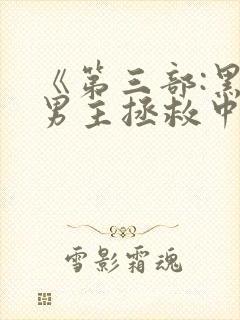 《第三部:黑
男主拯救中
雪影霜魂